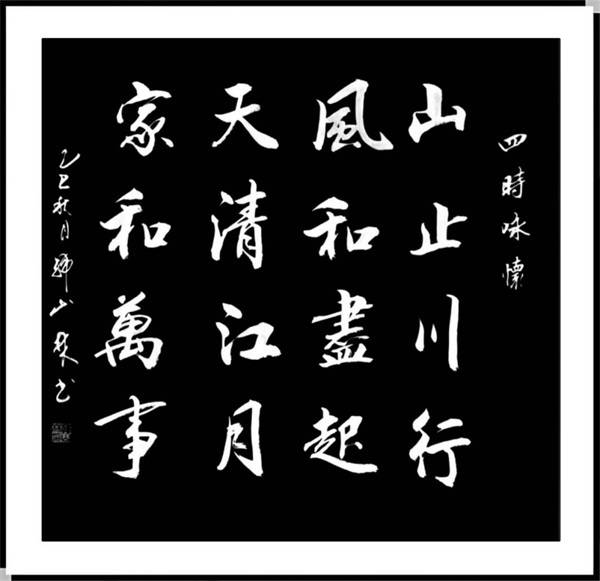 四時咏懷
山止川行
風和盡起
天清江月
家和萬事
乙巳秋月山书